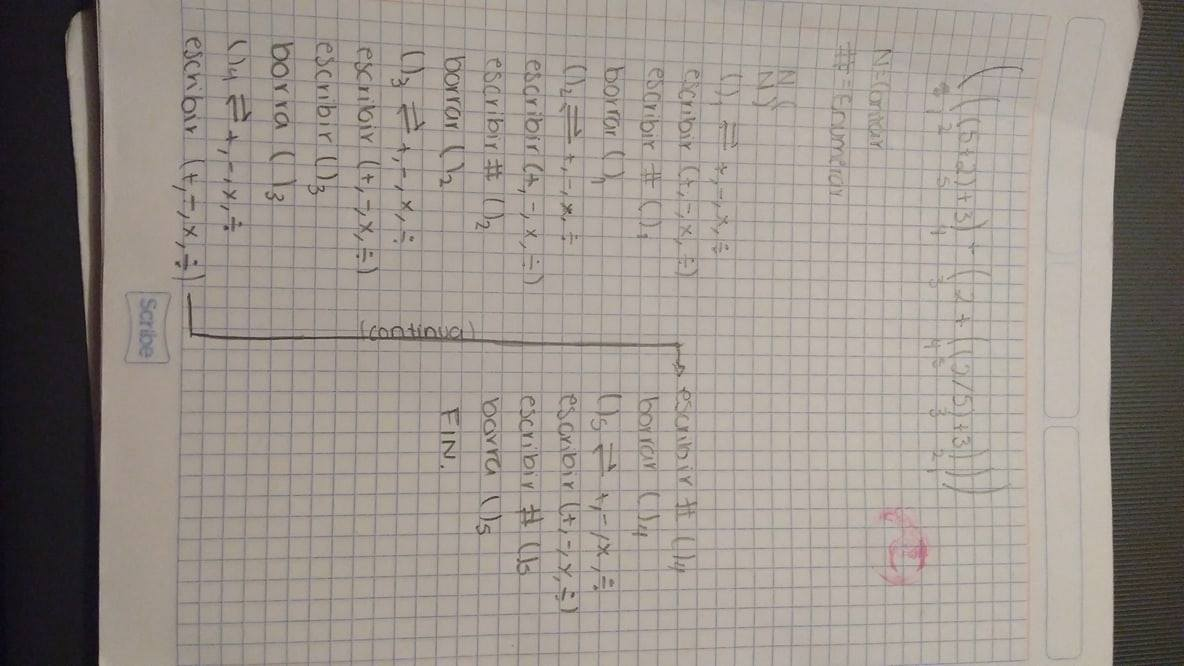 (((5+2)+3)+(2+((2/5)+3)))
1 2 5 4 3 4 5 3 2 1
N=Contar
#=Enumerar
N (
N )
( )1 ⇌ +,-,x,÷
escribir (+,-,x,÷)
escribir # ( )1
borrar ( )1
( )2 ⇌ +,-,x,÷
escribir (+,-,x,÷)
escribir # ( )2
borrar ( )2
( )3 ⇌ +,-,x,÷
escribir (+,-,x,÷)
escribir ( )3
borra ( )3
( )4 ⇌ +,-,x,÷
escribir (+,-,x,÷)
(continua)
escribir # ( )4
borrar ( )4
( )5 ⇌ +,-,x,÷
escribir (+,-,x,÷)
escribir # ( )5
borra ( )5
FIN.
Scribe